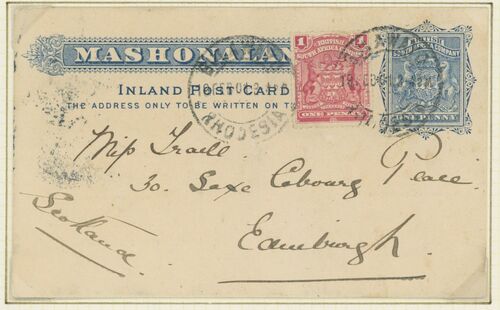 MASHONALAN
INLAND POST CARD
THE ADDRESS ONLY TO BE WRITTEN ON T
1 1
BRITISH
SOUTH AFRICA COMPANY
ONE PENNY
ONE PENNY
RHODESIA
Miss Traill
30. Saxe Cobourg Place
Edinburgh.
Scotland.